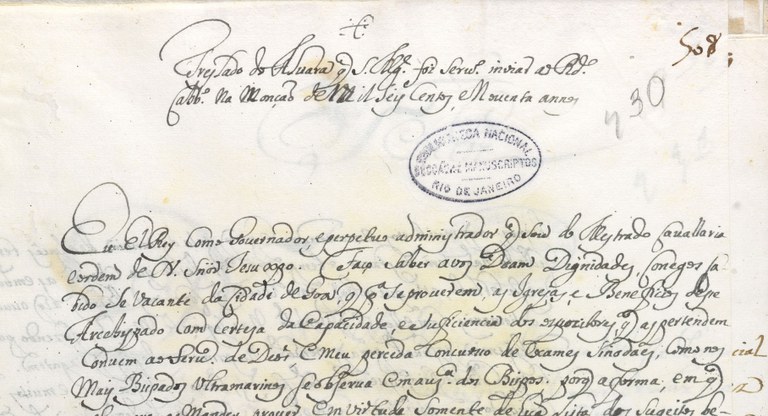 508
Treslado do Aluara q̃ S. Mgᵉ. foi Seruᵒ. inviar ao Rdᵒ.
Cabbᵒ. Na Monção de Mil Seis Centos, e Nouenta annos
930
BIBLIOTHECA NACIONAL
SECÇÃO DE MANUSCRIPTOS
RIO DE JANEIRO
Eu el Rey Como Gouernador, e perpetuo administrador q̃ Sou do Mestrado Cauallaria
e ordem de N. Snõr Jesu xpo. Faço Saber a vos Deam Dignidades, Conegos Ca-
bido Se Vacante da Cidade de Goa, q̃ pᵃ Se prouerem, as Igrejas, e Beneficios desse
Arcebispado Com Certeza da Capacidade, e Suficiencia dos q̃ as pertendem
Conuem ao Seruᵒ. de Deos e Meu preceda Concurso de Exames Sinodaes, Como nos
cial
Mais Bispados Vltramarinos Se obserua em aus. dos Bispos. porq̃ a forma, em q̃
as Mandes prouer em virtude Somente de